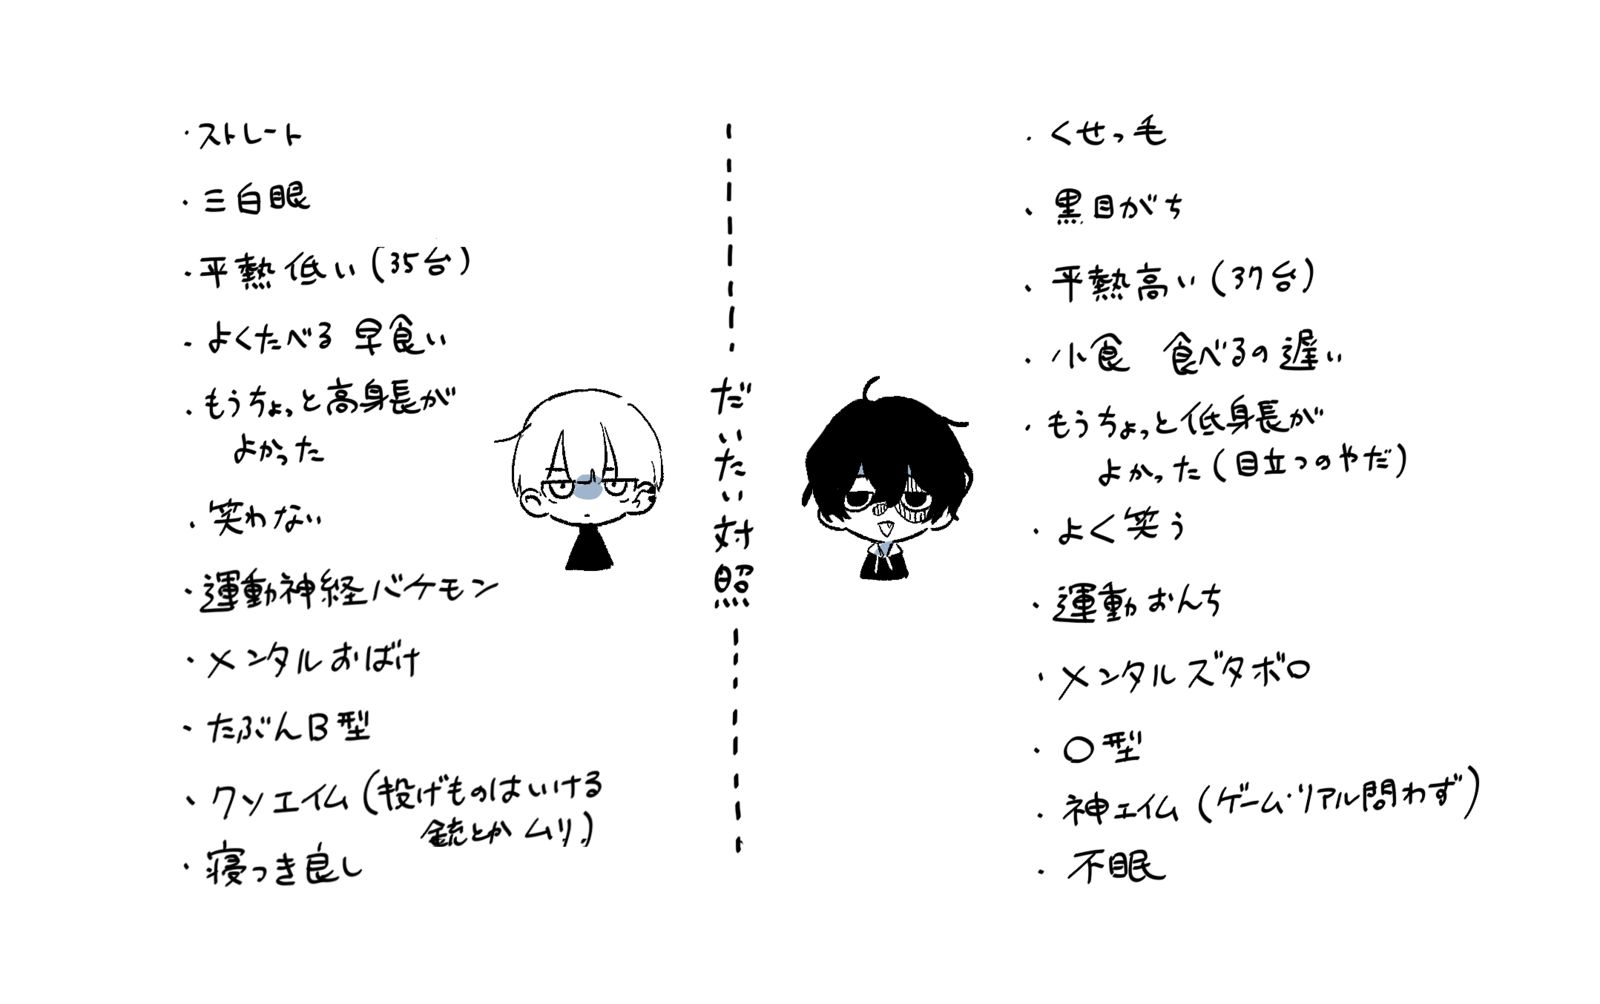 ・ストレート
・三白眼
・平熱低い(35台)
・よくたべる 早食い
・もうちょっと高身長が
よかった
・笑わない
・運動神経バケモン
・メンタルおばけ
・たぶんB型
・クソエイム(投げものはいける
銃とかムリ)
・寝つき良し
だいたい対照
・くせっ毛
・黒目がち
・平熱高い(37台)
・小食 食べるの遅い
・もうちょっと低身長が
よかった(目立つのやだ)
・よく笑う
・運動おんち
・メンタルズタボロ
・O型
・神エイム(ゲーム・リアル問わず)
・不眠